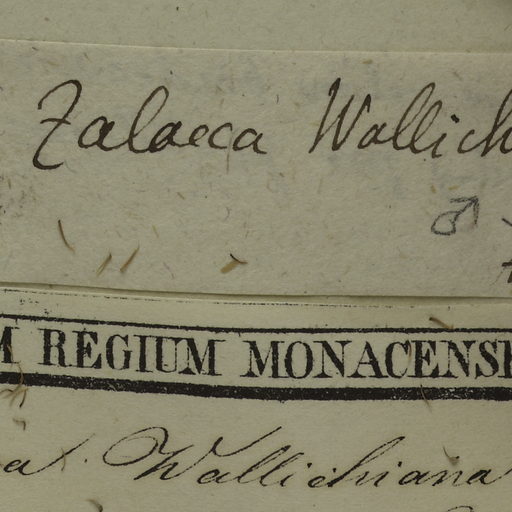 Zalacca Wallich
♂
M REGIUM MONACENS
a. Wallichiana